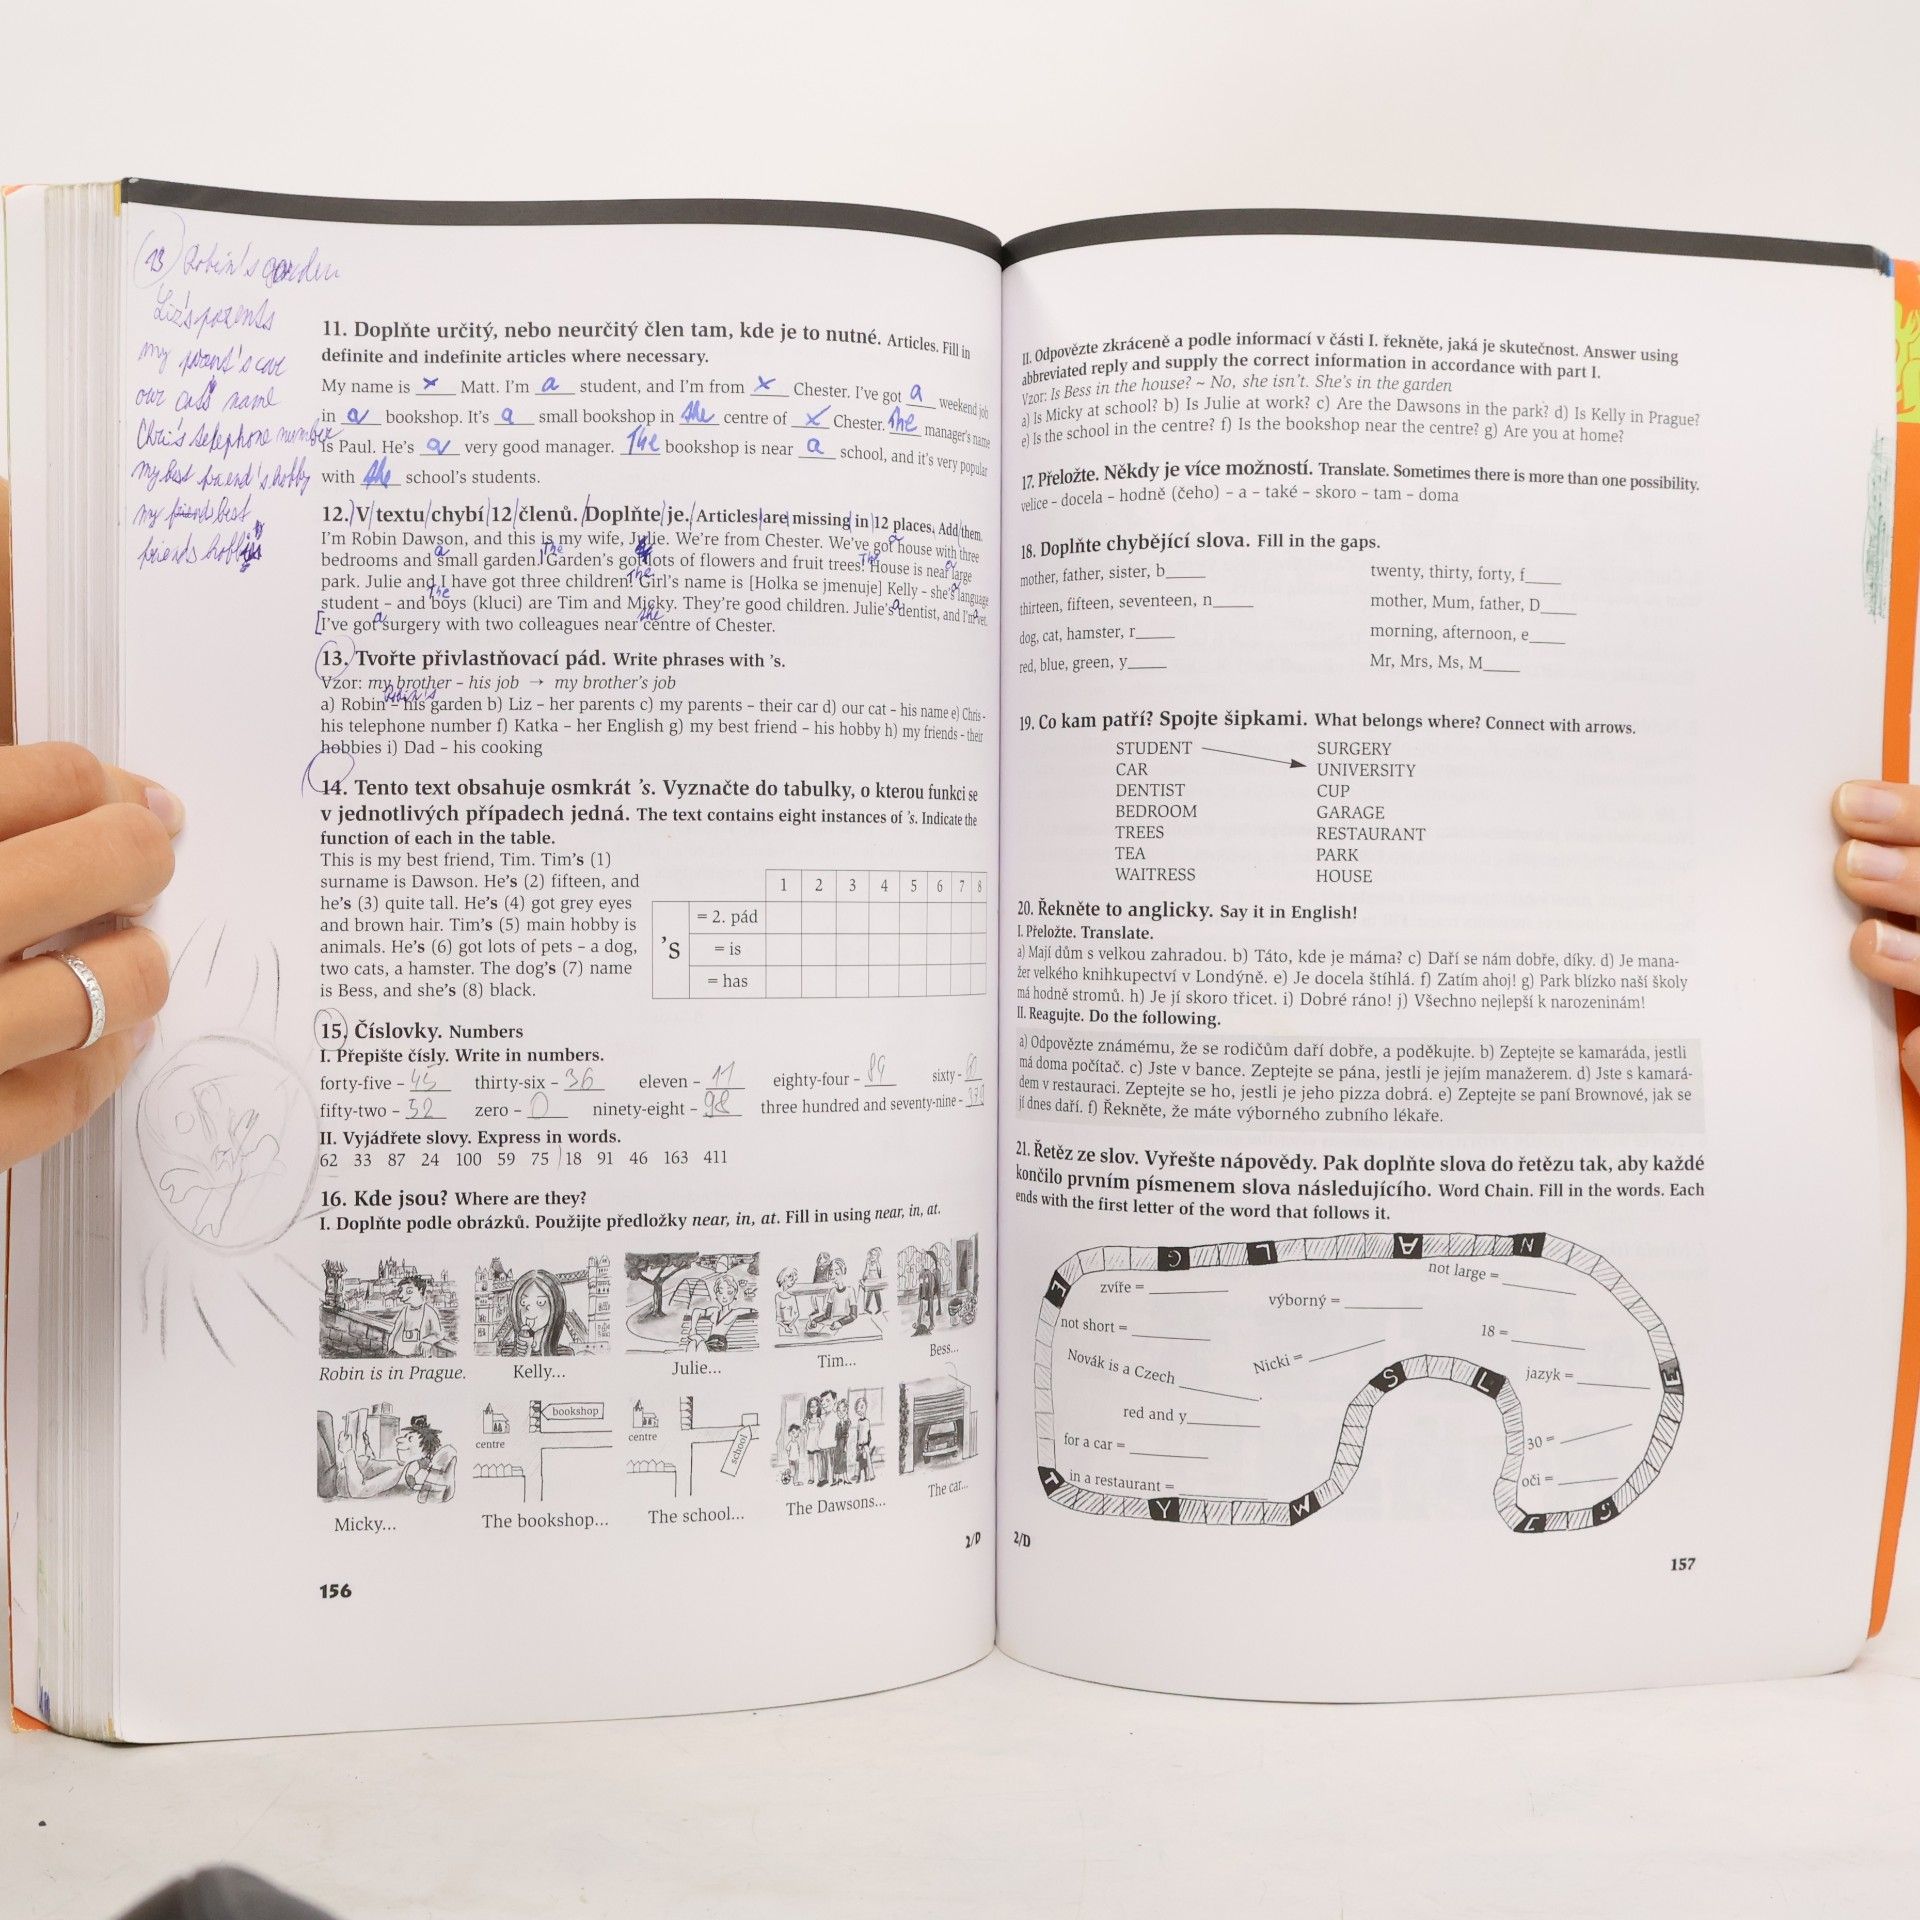 13 Robin's garden
Liz's parents
my parent's car
our cat's name
Chris's telephone number
my best friend's hobby
my best
friends hobbies
11. Doplňte určitý, nebo neurčitý člen tam, kde je to nutné. Articles. Fill in
definite and indefinite articles where necessary.
My name is x Matt. I'm a student, and I'm from x Chester. I've got a weekend job
in a bookshop. It's a small bookshop in the centre of x Chester. The manager's name
is Paul. He's a very good manager. The bookshop is near a school, and it's very popular
with the school's students.
12. V textu chybí 12 členů. Doplňte je. Articles are missing in 12 places. Add them.
I'm Robin Dawson, and this is my wife, Julie. We're from Chester. We've got a house with three
bedrooms and a small garden. The Garden's got lots of flowers and fruit trees. The House is near a large
park. Julie and I have got three children. The Girl's name is [Holka se jmenuje] Kelly – she's a language
student – and the boys (kluci) are Tim and Micky. They're good children. Julie's a dentist, and I'm a vet.
I've got a surgery with two colleagues near the centre of Chester.
13. Tvořte přivlastňovací pád. Write phrases with 's.
Vzor: my brother – his job → my brother's job
Robin's
a) Robin – his garden b) Liz – her parents c) my parents – their car d) our cat – his name e) Chris -
his telephone number f) Katka – her English g) my best friend – his hobby h) my friends - their
hobbies i) Dad – his cooking
14. Tento text obsahuje osmkrát 's. Vyznačte do tabulky, o kterou funkci se
v jednotlivých případech jedná. The text contains eight instances of 's. Indicate the
function of each in the table.
This is my best friend, Tim. Tim's (1)
surname is Dawson. He's (2) fifteen, and
he's (3) quite tall. He's (4) got grey eyes
and brown hair. Tim's (5) main hobby is
animals. He's (6) got lots of pets – a dog,
two cats, a hamster. The dog's (7) name
is Bess, and she's (8) black.
1 2 3 4 5 6 7 8
= 2. pád
's = is
= has
15. Číslovky. Numbers
I. Přepište čísly. Write in numbers.
forty-five – 45 thirty-six – 36 eleven – 11 eighty-four – 84 sixty - 60
fifty-two – 52 zero – 0 ninety-eight – 98 three hundred and seventy-nine - 379
II. Vyjádřete slovy. Express in words.
62 33 87 24 100 59 75 18 91 46 163 411
16. Kde jsou? Where are they?
I. Doplňte podle obrázků. Použijte předložky near, in, at. Fill in using near, in, at.
Robin is in Prague. Kelly... Julie... Tim... Bess...
centre bookshop centre school
Micky... The bookshop... The school... The Dawsons... The car...
2/D
156
II. Odpovězte zkráceně a podle informací v části I. řekněte, jaká je skutečnost. Answer using
abbreviated reply and supply the correct information in accordance with part I.
Vzor: Is Bess in the house? ~ No, she isn't. She's in the garden
a) Is Micky at school? b) Is Julie at work? c) Are the Dawsons in the park? d) Is Kelly in Prague?
e) Is the school in the centre? f) Is the bookshop near the centre? g) Are you at home?
17. Přeložte. Někdy je více možností. Translate. Sometimes there is more than one possibility.
velice – docela – hodně (čeho) – a – také – skoro – tam – doma
18. Doplňte chybějící slova. Fill in the gaps.
mother, father, sister, b____ twenty, thirty, forty, f____
thirteen, fifteen, seventeen, n____ mother, Mum, father, D____
dog, cat, hamster, r____ morning, afternoon, e____
red, blue, green, y____ Mr, Mrs, Ms, M____
19. Co kam patří? Spojte šipkami. What belongs where? Connect with arrows.
STUDENT SURGERY
CAR UNIVERSITY
DENTIST CUP
BEDROOM GARAGE
TREES RESTAURANT
TEA PARK
WAITRESS HOUSE
20. Řekněte to anglicky. Say it in English!
I. Přeložte. Translate.
a) Mají dům s velkou zahradou. b) Táto, kde je máma? c) Daří se nám dobře, díky. d) Je mana-
žer velkého knihkupectví v Londýně. e) Je docela štíhlá. f) Zatím ahoj! g) Park blízko naší školy
má hodně stromů. h) Je jí skoro třicet. i) Dobré ráno! j) Všechno nejlepší k narozeninám!
II. Reagujte. Do the following.
a) Odpovězte známému, že se rodičům daří dobře, a poděkujte. b) Zeptejte se kamaráda, jestli
má doma počítač. c) Jste v bance. Zeptejte se pána, jestli je jejím manažerem. d) Jste s kamará-
dem v restauraci. Zeptejte se ho, jestli je jeho pizza dobrá. e) Zeptejte se paní Brownové, jak se
jí dnes daří. f) Řekněte, že máte výborného zubního lékaře.
21. Řetěz ze slov. Vyřešte nápovědy. Pak doplňte slova do řetězu tak, aby každé
končilo prvním písmenem slova následujícího. Word Chain. Fill in the words. Each
ends with the first letter of the word that follows it.
E G L A N
zvíře = ____ not large = ____
výborný = ____
not short = ____ 18 = ____
Novák is a Czech ____. Nicki = ____ jazyk = ____ E
S L
red and y____
for a car = ____ 30 = ____
T in a restaurant = ____ oči = ____
Y W S
2/D
157